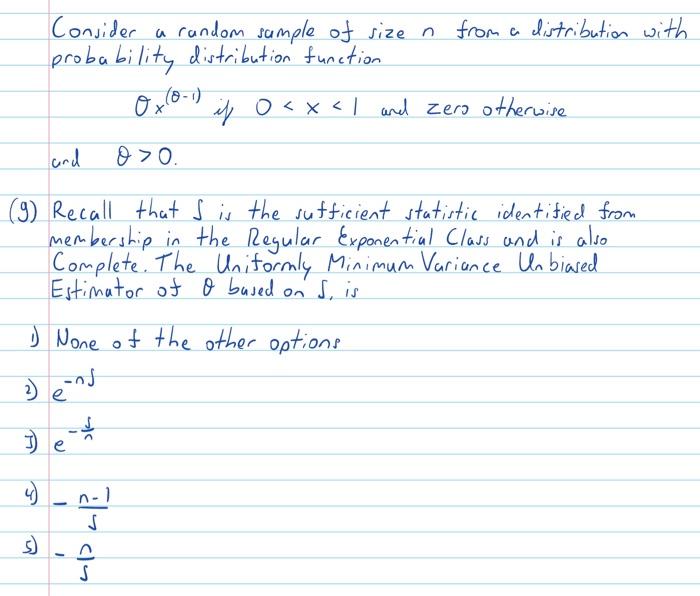 Consider a random sample of size n from a distribution with
probability distribution function
θx^(θ-1) if 0 < x < 1 and zero otherwise
and θ > 0.
(g) Recall that S is the sufficient statistic identified from
membership in the Regular Exponential Class and is also
Complete. The Uniformly Minimum Variance Unbiased
Estimator of θ based on S, is
1) None of the other options
2) e^-nS
3) e^-S/n
4) - n-1/S
5) - n/S